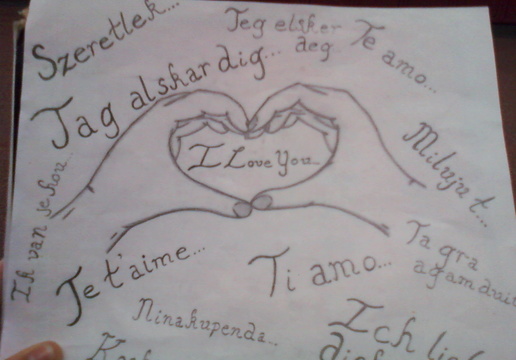 Szeretlek...
Jeg elsker
deg
Te amo...
Jag alskar dig...
I Love You...
Miluju t...
Ik van je hou...
Je t'aime...
Ti amo...
Ta gra
agam duit
Ninakupenda..
Ich